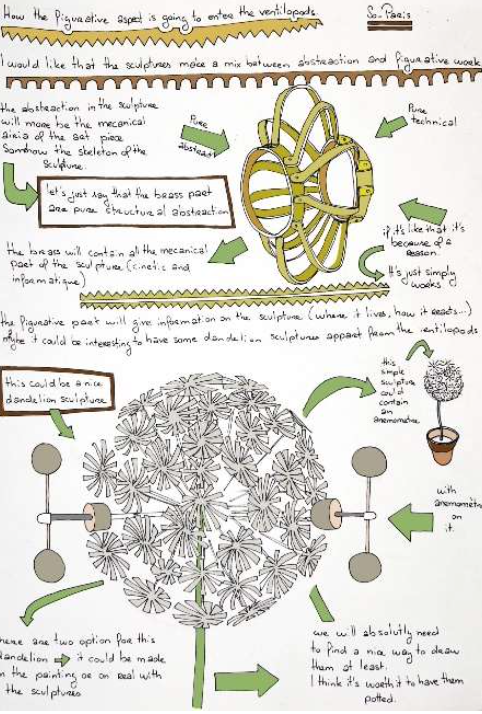 How the figurative aspect is going to enter the ventilopods.
So. Paris
I would like that the sculptures make a mix between abstraction and figurative work
the abstraction in the sculpture
will more be the mecanical
of the art piece
Somehow the skeleton of the
sculpture.
Pure
abstract
Pure
technical
let's just say that the brass part
are pure structural abstraction
if it's like that it's
because of a
reason.
It's just simply
works.
the brass will contain all the mecanical
part of the sculpture (cinetic and
informatique)
the figurative part will give information on the sculpture (where it lives, how it reacts...)
Maybe it could be interesting to have some dandelion sculptures appart from the ventilopods
this could be a nice
dandelion sculpture
this
simple
sculpture
could
contain
an
anemometre
with
anemometre
on
it.
there are two option for this
dandelion it could be made
in the painting or on real with
the sculptures
we will absolutly need
to find a nice way to draw
them at least.
I think it's worth it to have them
potted.